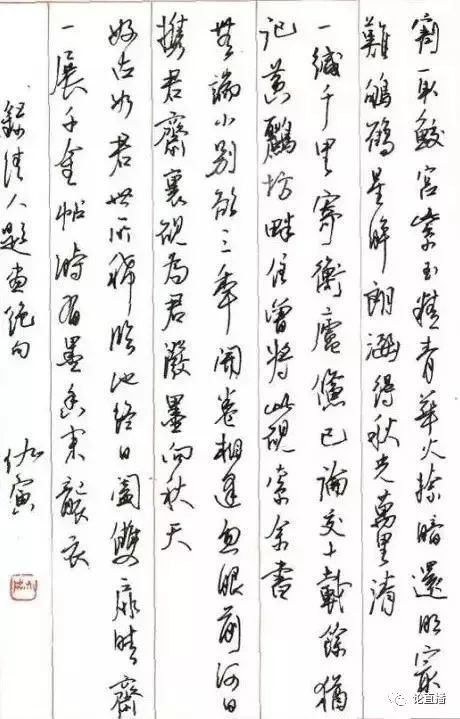 割取鮫宮紫玉精青華火捺暗還明最
難鴝鵒星眸朗得秋光萬里清
一緘千里寄衡廬已論交十載餘猶
記黃鸝坊畔住曾將此硯索余書
無端小別欲三年開卷相逢忽眼前何日
攜君齋裏硯為君潑墨向秋天
好古如君世所稀臨池終日闔雙扉晴齋
一展千金帖時有墨香來襲衣
錄清人題畫絕句 伽寅
论直播